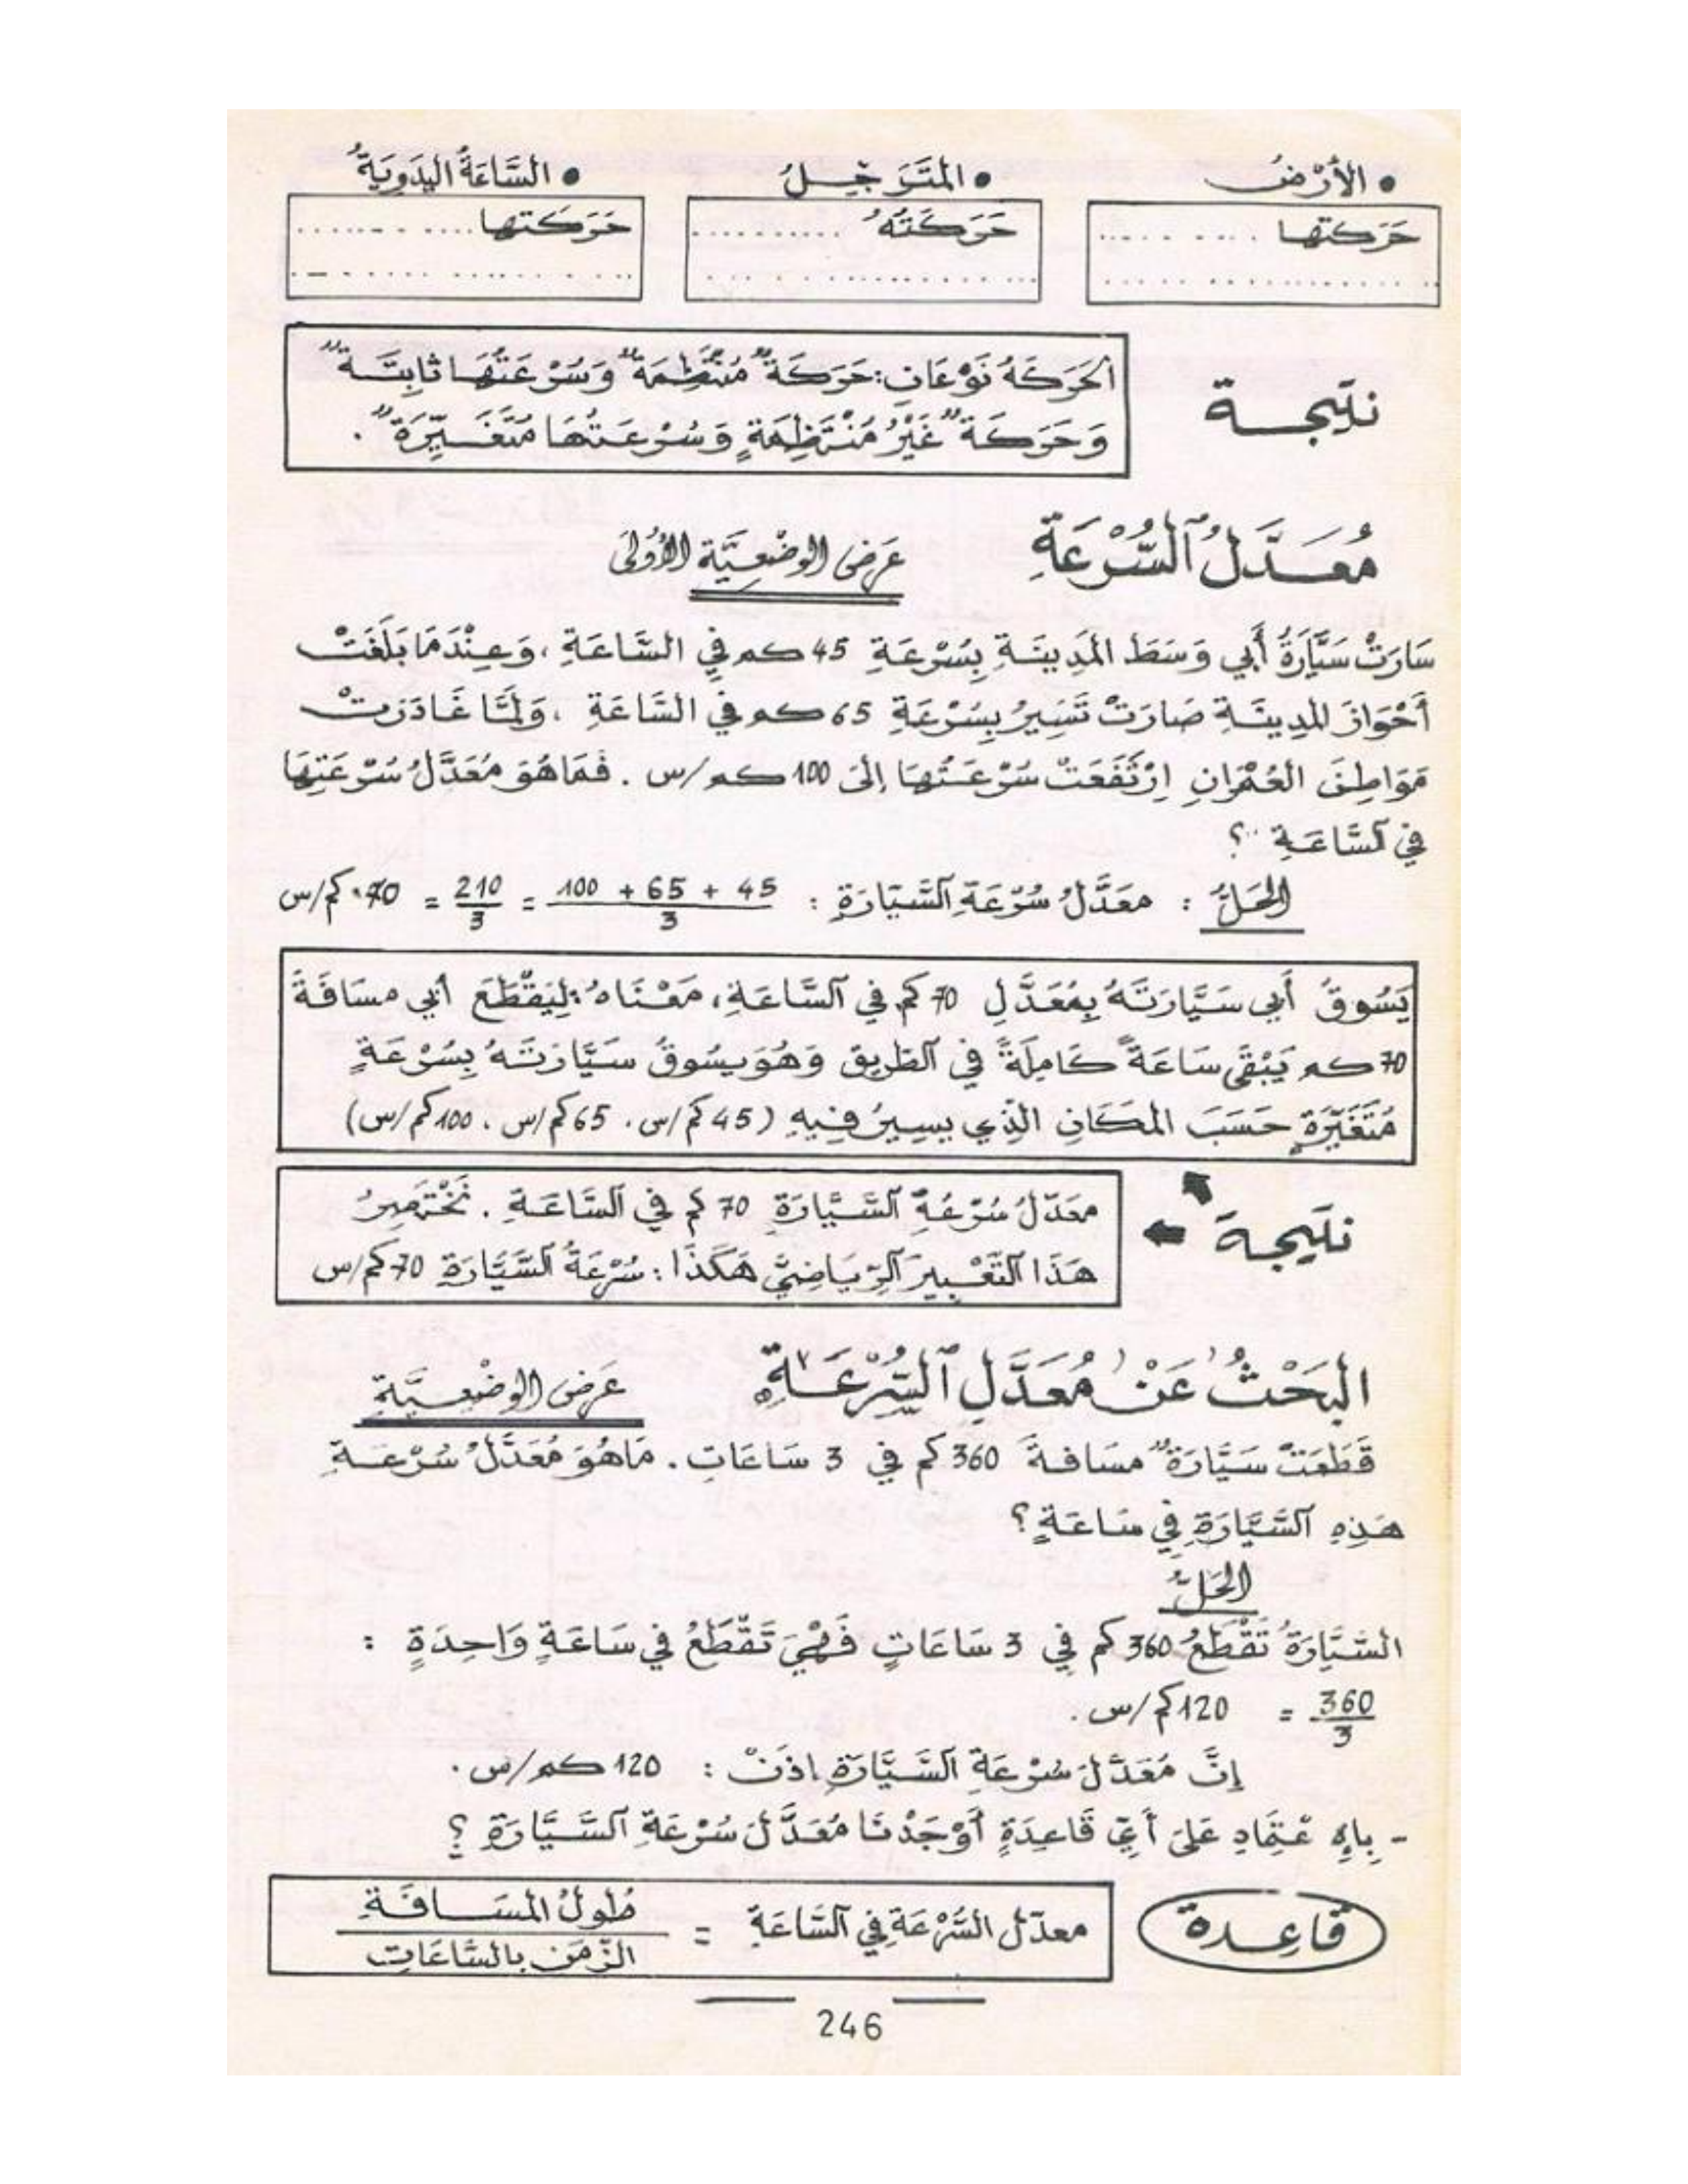 • الأَرْضُ • المُتَرَجِّلُ • السَّاعَةُ اليَدَوِيَّةُ
حَرَكَتُهَا .......... حَرَكَتُهُ .......... حَرَكَتُهَا ..........
.................... .................... ....................
الحَرَكَةُ نَوْعَانِ: حَرَكَةٌ مُنْتَظِمَةٌ وَسُرْعَتُهَا ثَابِتَةٌ
نتيجة
وَحَرَكَةٌ غَيْرُ مُنْتَظِمَةٍ وَسُرْعَتُهَا مُتَغَيِّرَةٌ.
مُعَدَّلُ ٱلسُّرْعَةِ عَرْضُ الوَضْعِيَّةِ الأُولَى
سَارَتْ سَيَّارَةُ أَبِي وَسَطَ المَدِينَةِ بِسُرْعَةِ 45 كم فِي السَّاعَةِ، وَعِنْدَمَا بَلَغَتْ
أَحْوَازَ المَدِينَةِ صَارَتْ تَسِيرُ بِسُرْعَةِ 65 كم فِي السَّاعَةِ، وَلَمَّا غَادَرَتْ
مَوَاطِنَ العُمْرَانِ اِرْتَفَعَتْ سُرْعَتُهَا إِلَى 100 كم/س. فَمَا هُوَ مُعَدَّلُ سُرْعَتِهَا
فِي ٱلسَّاعَةِ ؟
الحَلُّ : معَدَّلُ سُرْعَةِ ٱلسَّيَّارَةِ : 45 + 65 + 100 / 3 = 210 / 3 = 70 كم/س
يَسُوقُ أَبِي سَيَّارَتَهُ بِمُعَدَّلِ 70 كم فِي ٱلسَّاعَةِ، مَعْنَاهُ: لِيَقْطَعَ أَبِي مسَافَةَ
70 كم يَبْقَى سَاعَةً كَامِلَةً فِي ٱلطَّرِيقِ وَهُوَ يَسُوقُ سَيَّارَتَهُ بِسُرْعَةٍ
مُتَغَيِّرَةٍ حَسَبَ المَكَانِ الَّذِي يسِيرُ فِيهِ (45 كم/س، 65 كم/س، 100 كم/س)
معَدَّلُ سُرْعَةِ ٱلسَّيَّارَةِ 70 كم فِي ٱلسَّاعَةِ. نَخْتَصِرُ
نتيجة
هَذَا ٱلتَّعْبِيرَ ٱلرِّيَاضِيَّ هَكَذَا: سُرْعَةُ ٱلسَّيَّارَةِ 70 كم/س
البَحْثُ عَنْ مُعَدَّلِ ٱلسُّرْعَةِ عَرْضُ الوَضْعِيَّةِ
قَطَعَتْ سَيَّارَةٌ مسَافةَ 360 كم فِي 3 سَاعَاتٍ. مَا هُوَ مُعَدَّلُ سُرْعَةِ
هَذِهِ ٱلسَّيَّارَةِ فِي سَاعَةٍ؟
الحَلُّ
السَّيَّارَةُ تَقْطَعُ 360 كم فِي 3 سَاعَاتٍ فَهْيَ تَقْطَعُ فِي سَاعَةٍ وَاحِدَةٍ :
360 / 3 = 120 كم/س.
إِنَّ مُعَدَّلَ سُرْعَةِ ٱلسَّيَّارَةِ إذَنْ : 120 كم/س.
- بِاﻹِ عْتِمَادِ عَلَى أَيِّ قَاعِدَةٍ أَوْجَدْنَا مُعَدَّلَ سُرْعَةِ ٱلسَّيَّارَةِ ؟
قَاعِدة
معدّل السُّرْعَةِ فِي ٱلسَّاعَةِ = طُولُ المَسَافَةِ / الزّمَن بالسَّاعَاتِ
246